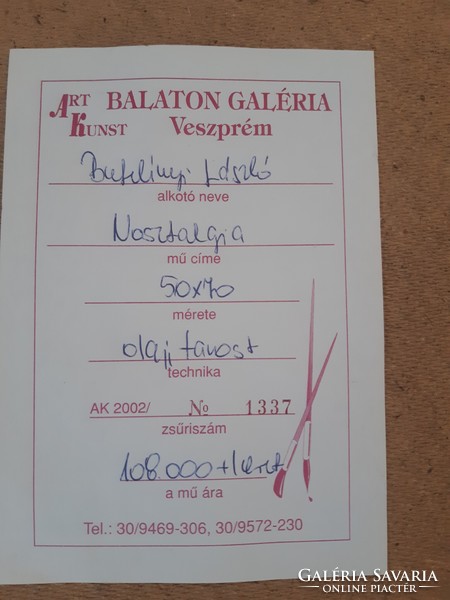 ART KUNST BALATON GALÉRIA
Veszprém
László
alkotó neve
Nosztalgia
mű címe
50x70
mérete
olaj, farost
technika
AK 2002/ № 1337
zsűriszám
108.000+keret
a mű ára
Tel.: 30/9469-306, 30/9572-230
GALÉRIA SAVARIA
ONLINE PIACTÉR